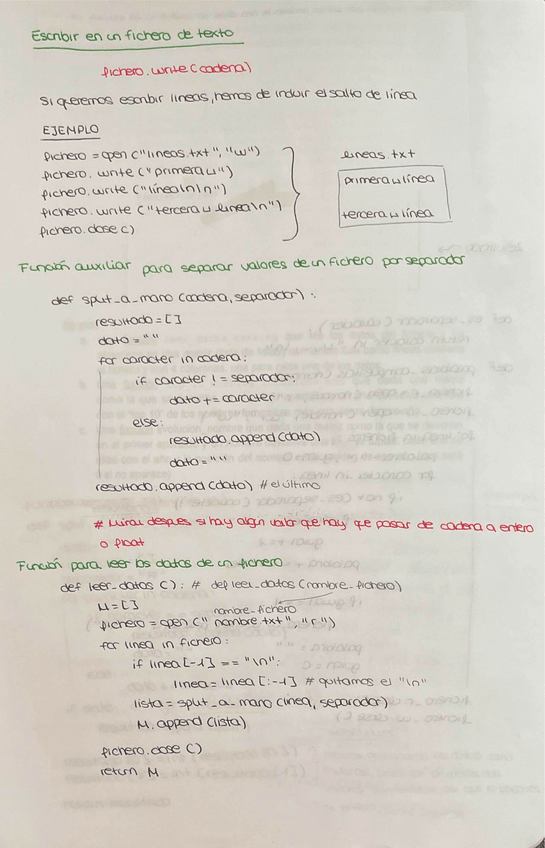 Escribir en un fichero de texto
fichero.write(cadena)
Si queremos escribir lineas, hemos de incluir el salto de línea
EJEMPLO
fichero = open ("lineas.txt", "w")
fichero. write ("primera ␣")
fichero. write ("línea\n\n")
fichero. write ("tercera ␣ linea\n")
fichero. close ()
lineas.txt
primera ␣ línea
tercera ␣ línea
Función auxiliar para separar valores de un fichero por separador
def split_a_mano (cadena, separador) :
resultado = []
dato = " "
for caracter in cadena:
if caracter != separador:
dato += caracter
else:
resultado.append (dato)
dato = " "
resultado.append (dato) # el último
# Mirar despues si hay algn valor que hay que pasar de cadena a entero
o float
Función para leer los datos de un fichero
def leer_datos (): # def leer_datos (nombre_fichero)
M = []
nombre_fichero
fichero = open (" nombre txt", "r")
for linea in fichero:
if linea [-1] == "\n":
linea = linea [:-1] # quitamos el "\n"
lista = split_a_mano (linea, separador)
M. append (lista)
fichero.close ()
return M